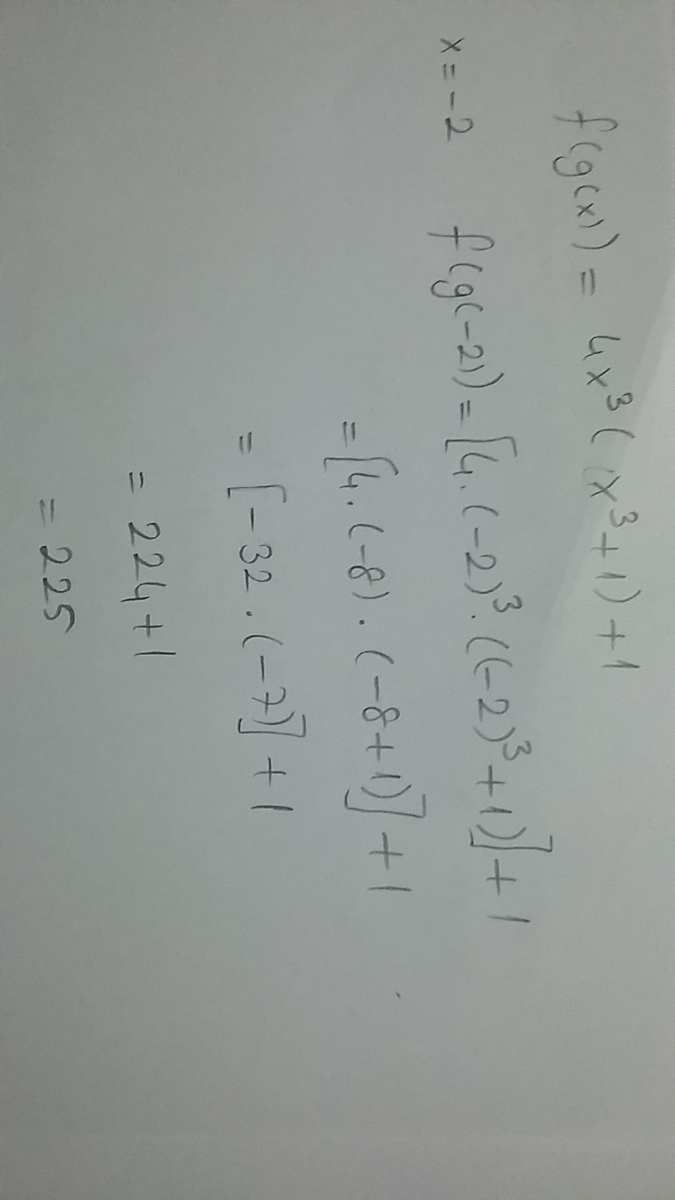 f(g(x)) = 4x³(x³+1)+1
x=-2 f(g(-2)) = [4.(-2)³.((-2)³+1)]+1
= [4.(-8).(-8+1)]+1
= [-32.(-7)]+1
= 224+1
= 225